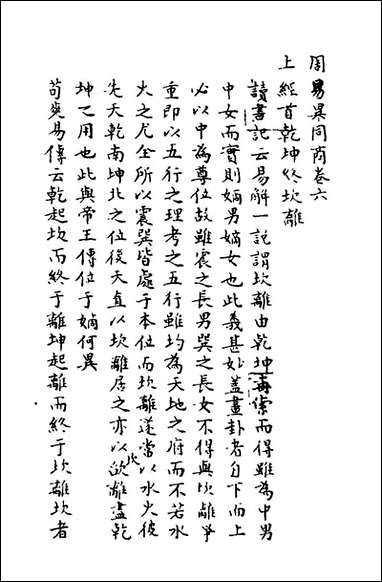 周易異同商卷六
上經首乾坤終坎離
讀書記云易解一說謂坎離由乾坤再索而得雖為中男
中女而實則嫡男嫡女也此義甚妙蓋畫卦者自下而上
必以中為尊位故雖震之長男巽之長女不得與坎離爭
重即以五行之理考之五行雖均為天地之府而不若水
火之尤全所以震巽皆處于本位而坎離遂當以水火彼
先天乾南坤北之位後天直以坎離居之亦以坎離盡乾
坤之用也此與帝王傳位于嫡何異
荀爽易傳云乾起坎而終于離坤起離而終于坎離坎者